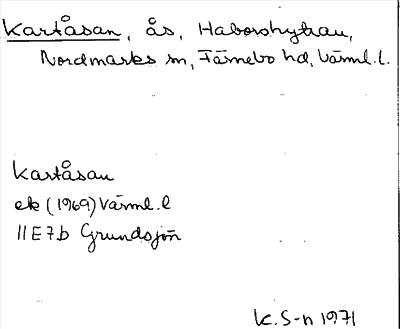 Kartåsan, ås, Haborshyttan,
Nordmarks sn, Färnebo hd, Värml. l.
Kartåsan
ek (1969) Värml. l
11E7b Grundsjön
K. S-n 1971